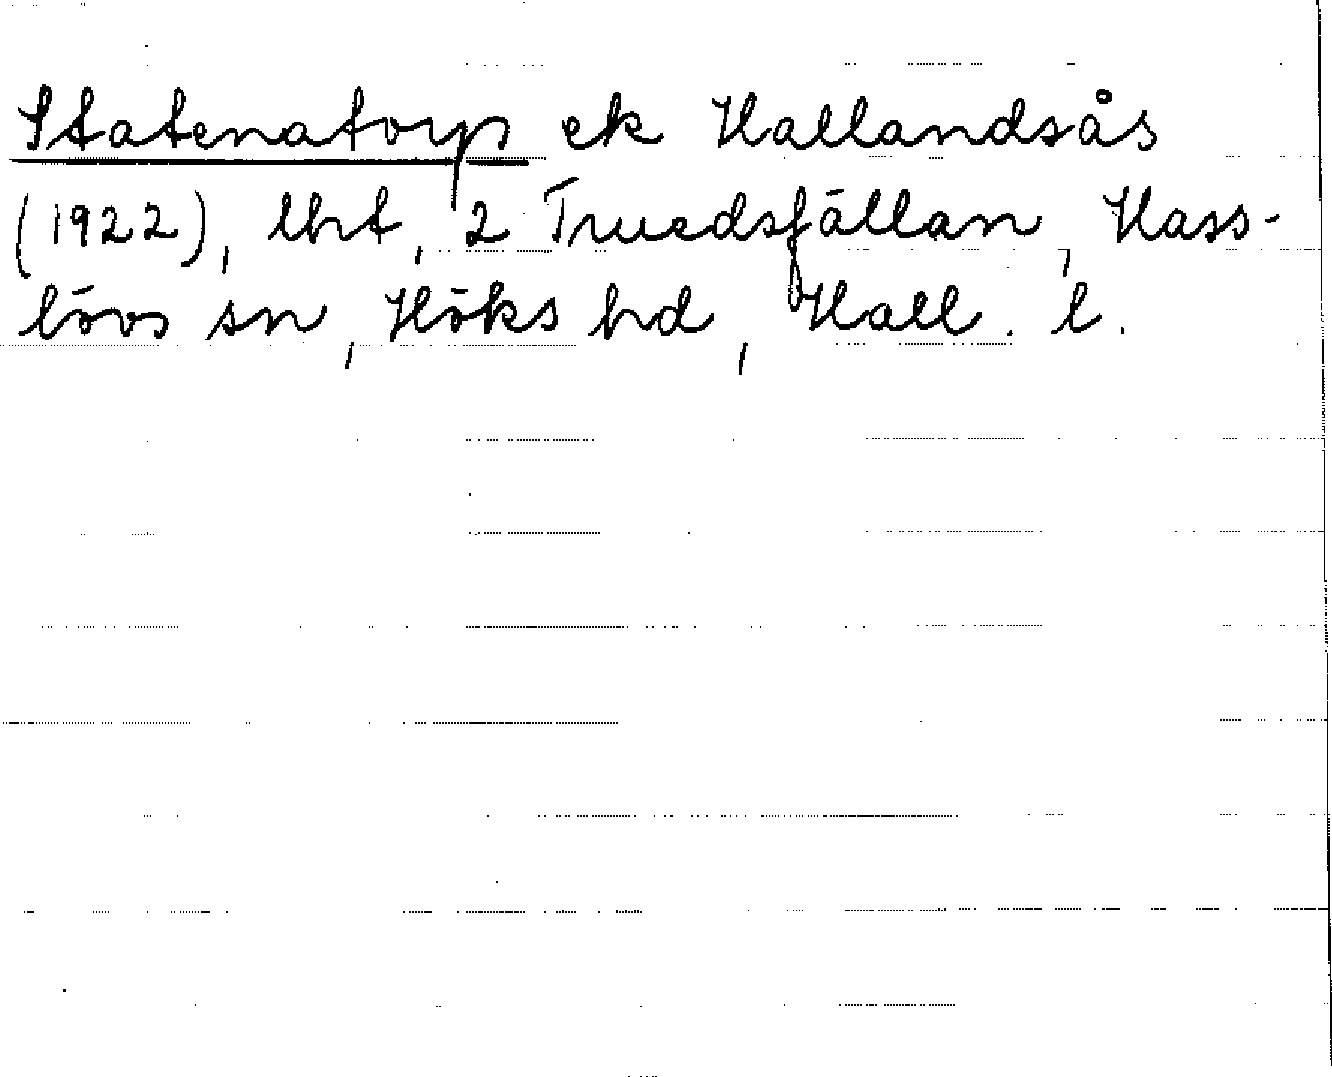 Statenatorp ek Hallandsås
(1922), lht, 2 Truedsfällan, Hass-
lövs sn, Höks hd, Hall. l.